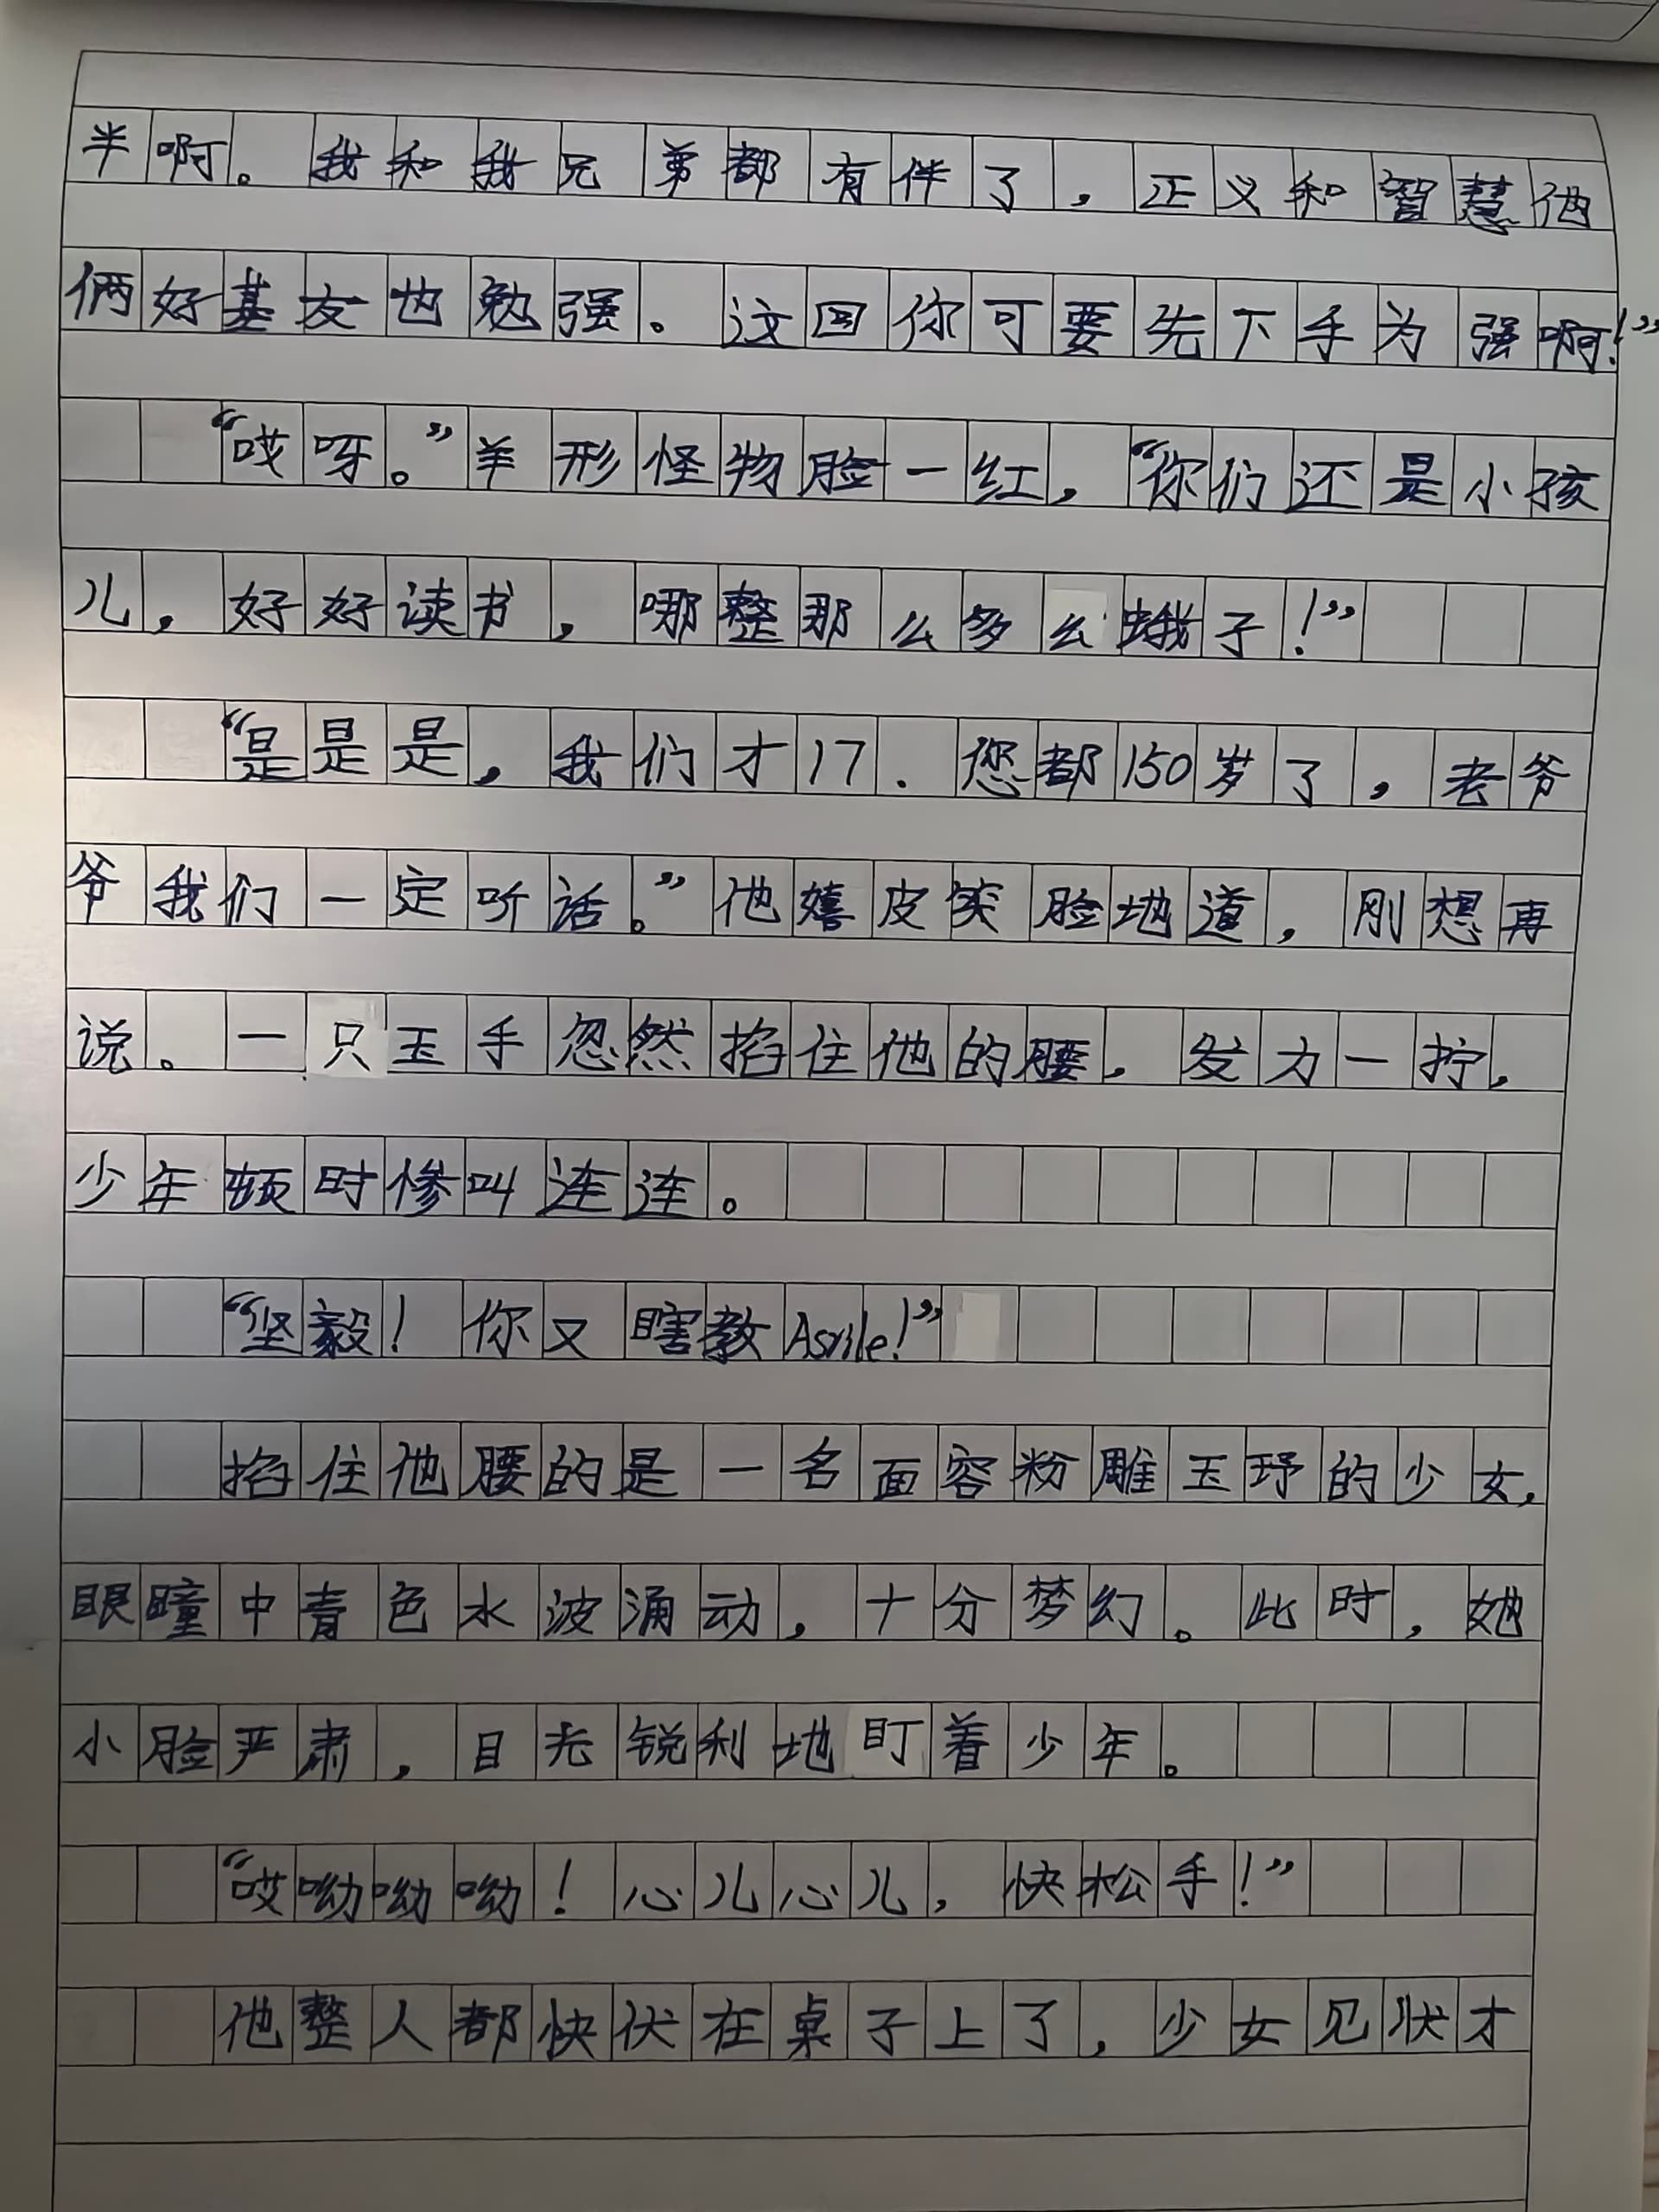 半啊。我和我兄弟都有伴了，正义和智慧他
俩好基友也勉强。这回你可要先下手为强啊！”
“哎呀。”羊形怪物脸一红，“你们还是小孩
儿，好好读书，哪整那么多幺蛾子！”
“是是是，我们才17．您都150岁了，老爷
爷我们一定听话。”他嬉皮笑脸地道，刚想再
说。一只玉手忽然掐住他的腰，发力一拧，
少年顿时惨叫连连。
“坚毅！你又瞎教Asrile！”
掐住他腰的是一名面容粉雕玉琢的少女，
眼瞳中青色水波涌动，十分梦幻。此时，她
小脸严肃，目光锐利地盯着少年。
“哎呦呦呦！心儿心儿，快松手！”
他整人都快伏在桌子上了，少女见状才